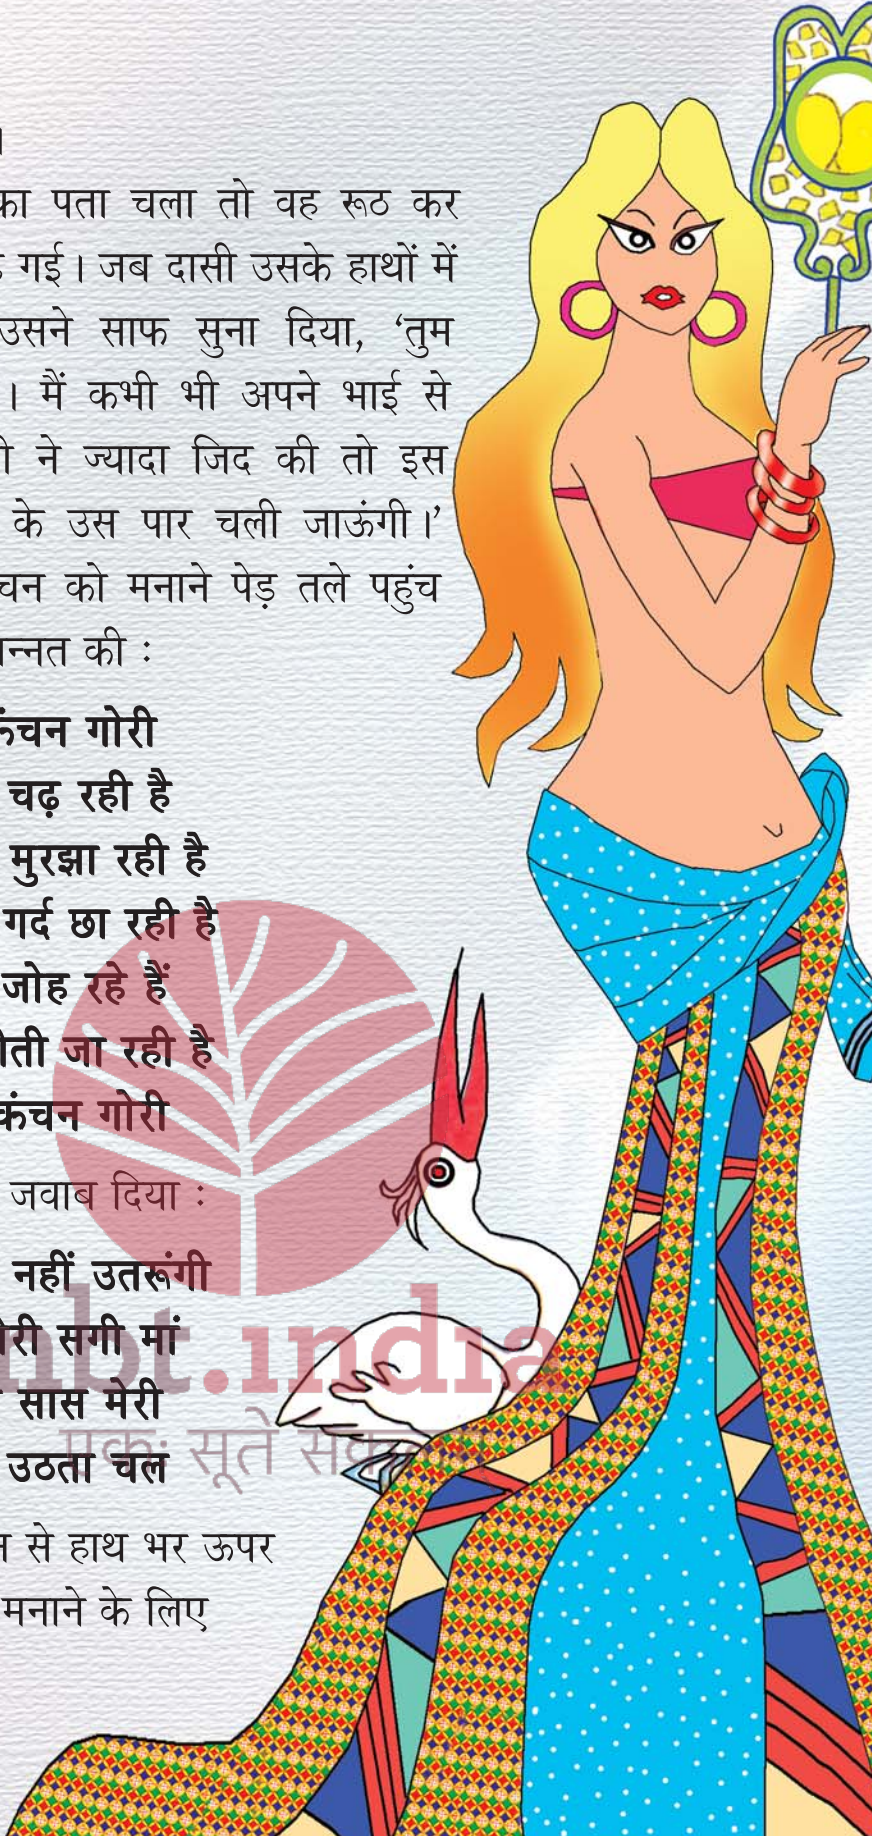 ।
का पता चला तो वह रूठ कर
गई। जब दासी उसके हाथों में
उसने साफ सुना दिया, ‘तुम
। मैं कभी भी अपने भाई से
ने ज्यादा जिद की तो इस
के उस पार चली जाऊंगी।’
को मनाने पेड़ तले पहुंच
की :
कंचन गोरी
चढ़ रही है
मुरझा रही है
गर्द छा रही है
जोह रहे हैं
जा रही है
कंचन गोरी
जवाब दिया :
नहीं उतरूंगी
सगी मां
सास मेरी
उठता चल
से हाथ भर ऊपर
मनाने के लिए
nbt.india
एकः सूते सकलम्